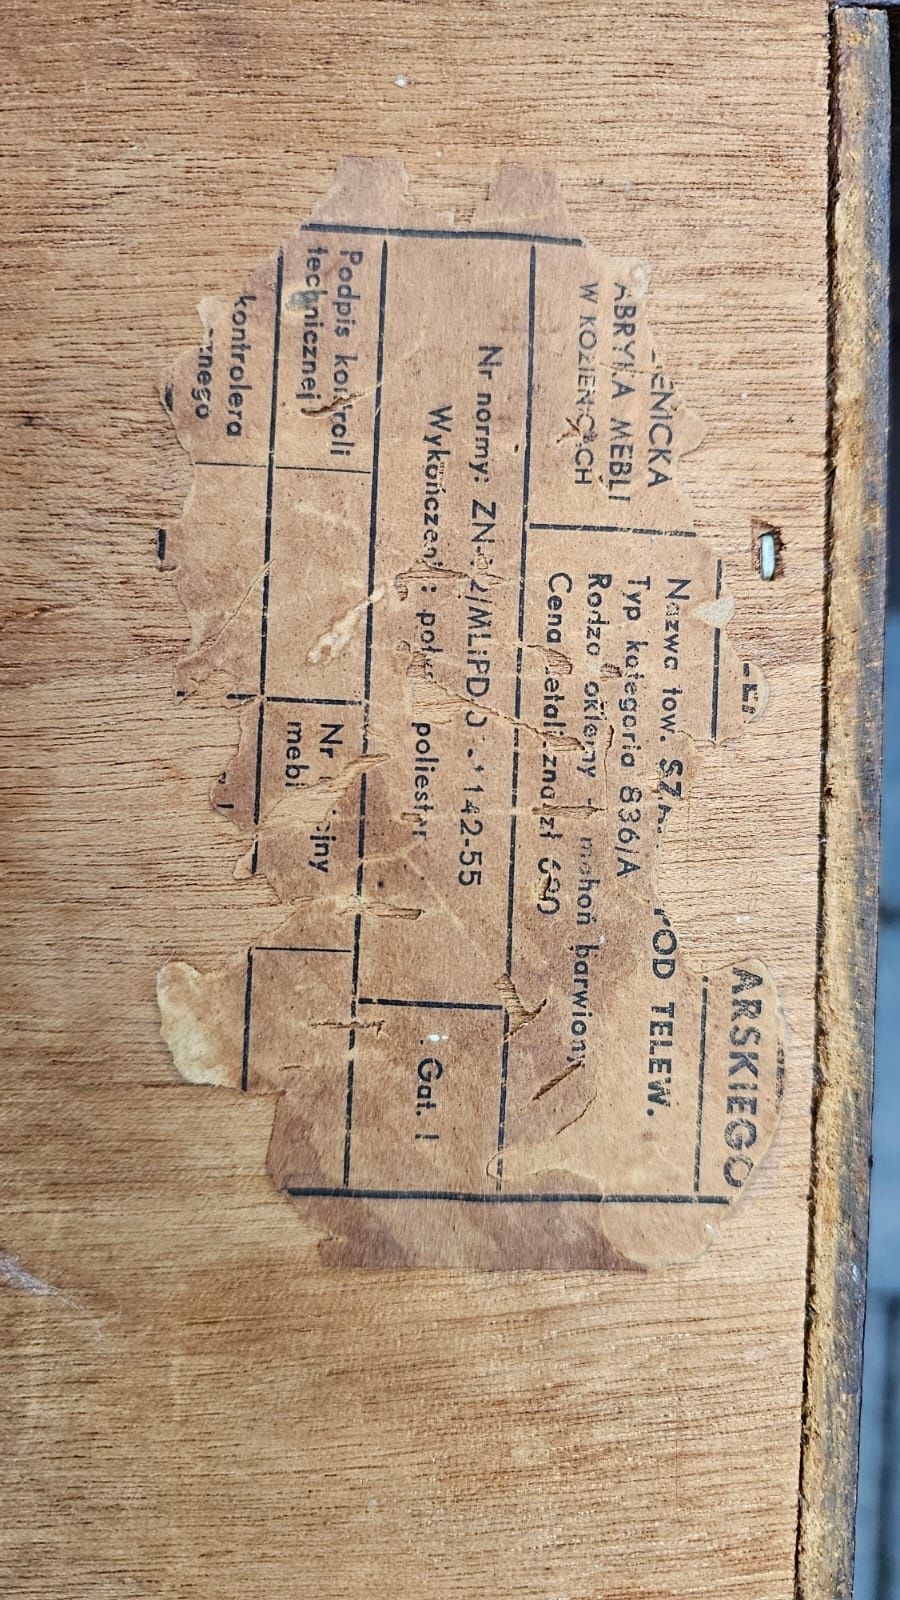 ARSKIEGO
ENICKA
ABRYKA MEBLI
W KOZIENICACH
Nazwa tow. SZA POD TELEW.
Typ kategoria 836/A
Rodzaj okleiny - mahoń barwiony
Cena detaliczna zł
Nr normy: 142-55
Wykończeni : poły poliester
Gat. I
Podpis kontroli
technicznej
Nr jny
mebl
kontrolera
znego